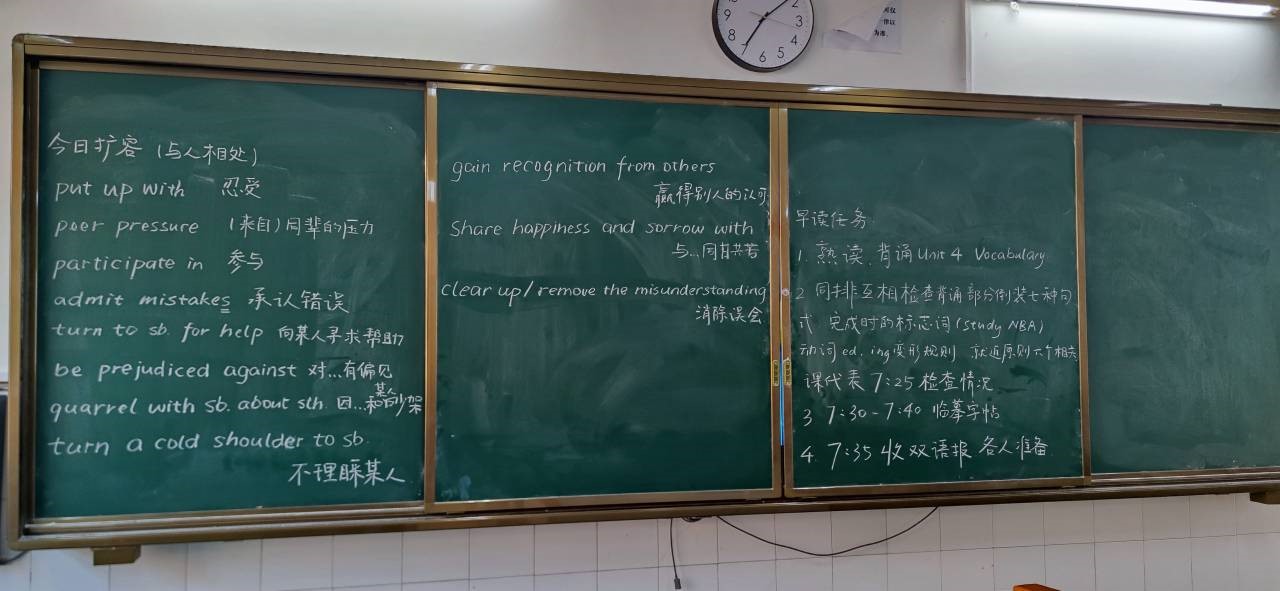 今日扩容（与人相处）
put up with 忍受
peer pressure （来自）同辈的压力
participate in 参与
admit mistakes 承认错误
turn to sb. for help 向某人寻求帮助
be prejudiced against 对...有偏见
quarrel with sb. about sth. 因...和某人吵架
turn a cold shoulder to sb.
不理睬某人
gain recognition from others
赢得别人的认可
Share happiness and sorrow with
与...同甘共苦
clear up/remove the misunderstanding
消除误会
早读任务
1. 熟读、背诵 Unit 4 Vocabulary
2 同排互相检查背诵部分倒装七种句
式 完成时的标志词(Study NBA)
动词ed、ing变形规则 就近原则六个相关
课代表 7:25 检查情况
3 7:30-7:40 临摹字帖
4. 7:35 收双语报 各人准备